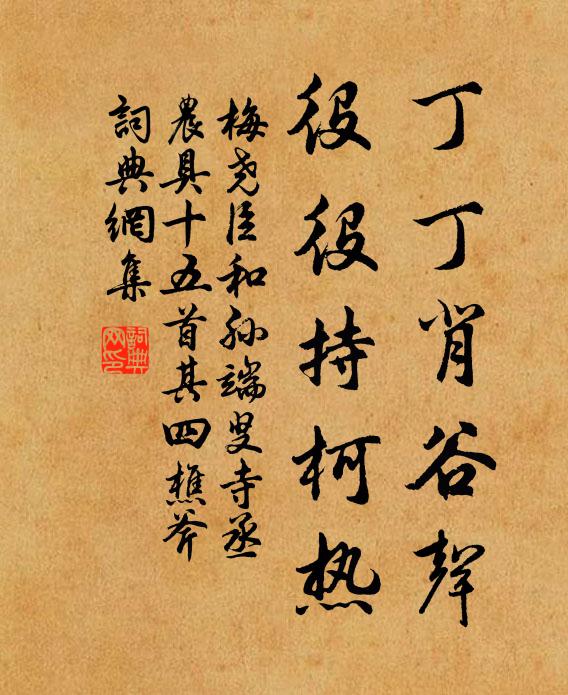 丁丁肯谷聲
役役持柯热
梅尧臣和孙端叟寺丞
農具十五首其四樵斧
詞典網集
詞典網印